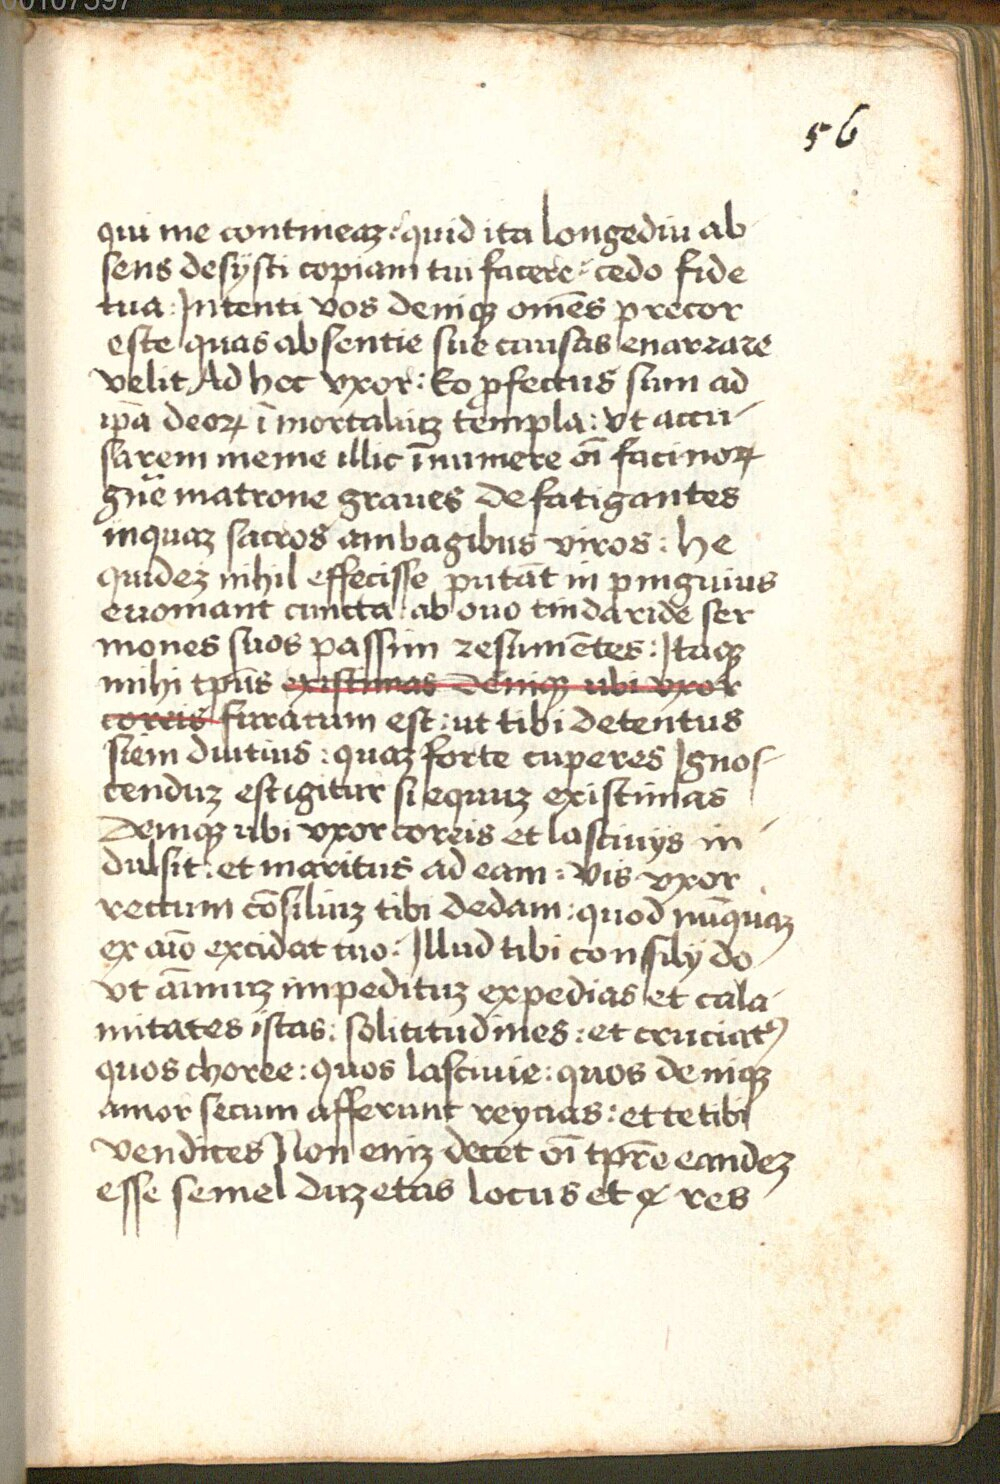 00107397
56
qui me contineaz: quid ita longediu ab
sens desÿsti copiam tui facere: cedo fide
tua: Intenti vos deniqꝫ om̄es precor
este quas absentie sue causas enarrare
velit Ad hec vxor: Eo ꝓfectus sum ad
ip̄a deoꝝ ī mortaliuꝫ templa: vt accu
sarem meme illic īnumere oī facinoꝝ
gn̄e matrone graues defatigantes
inquaꝫ sacros ambagibus viros: he
quideꝫ nihil effecisse putāt ni pinguius
euomant cuncta: ab ouo tindaride ser
mones suos passim resumētes: Itaqꝫ
mihi tp̄us existimas deniqꝫ ubi vxor
coreis furatum est: ut tibi detentus
siem diutius: quaꝫ forte cuperes Ignos
cenduꝫ est igitur si equuꝫ existimas
Deniqꝫ ubi vxor coreis et lasciuijs in
dulsit: et maritus ad eam: Vis vxor
rectum cōsiliuꝫ tibi dedam: quod nūquaꝫ
ex aīo excidat tuo: Illud tibi consilij do
vt aīmuꝫ impedituꝫ expedias et cala
mitates istas: solititudines: et cruciatꝰ
quos choree: quos lasciuie: quos deniqꝫ
amor secum afferunt reycias: et te tibi
vendices Non eniꝫ decet oī tp̄re eandeꝫ
esse semel duꝫ etas locus et res